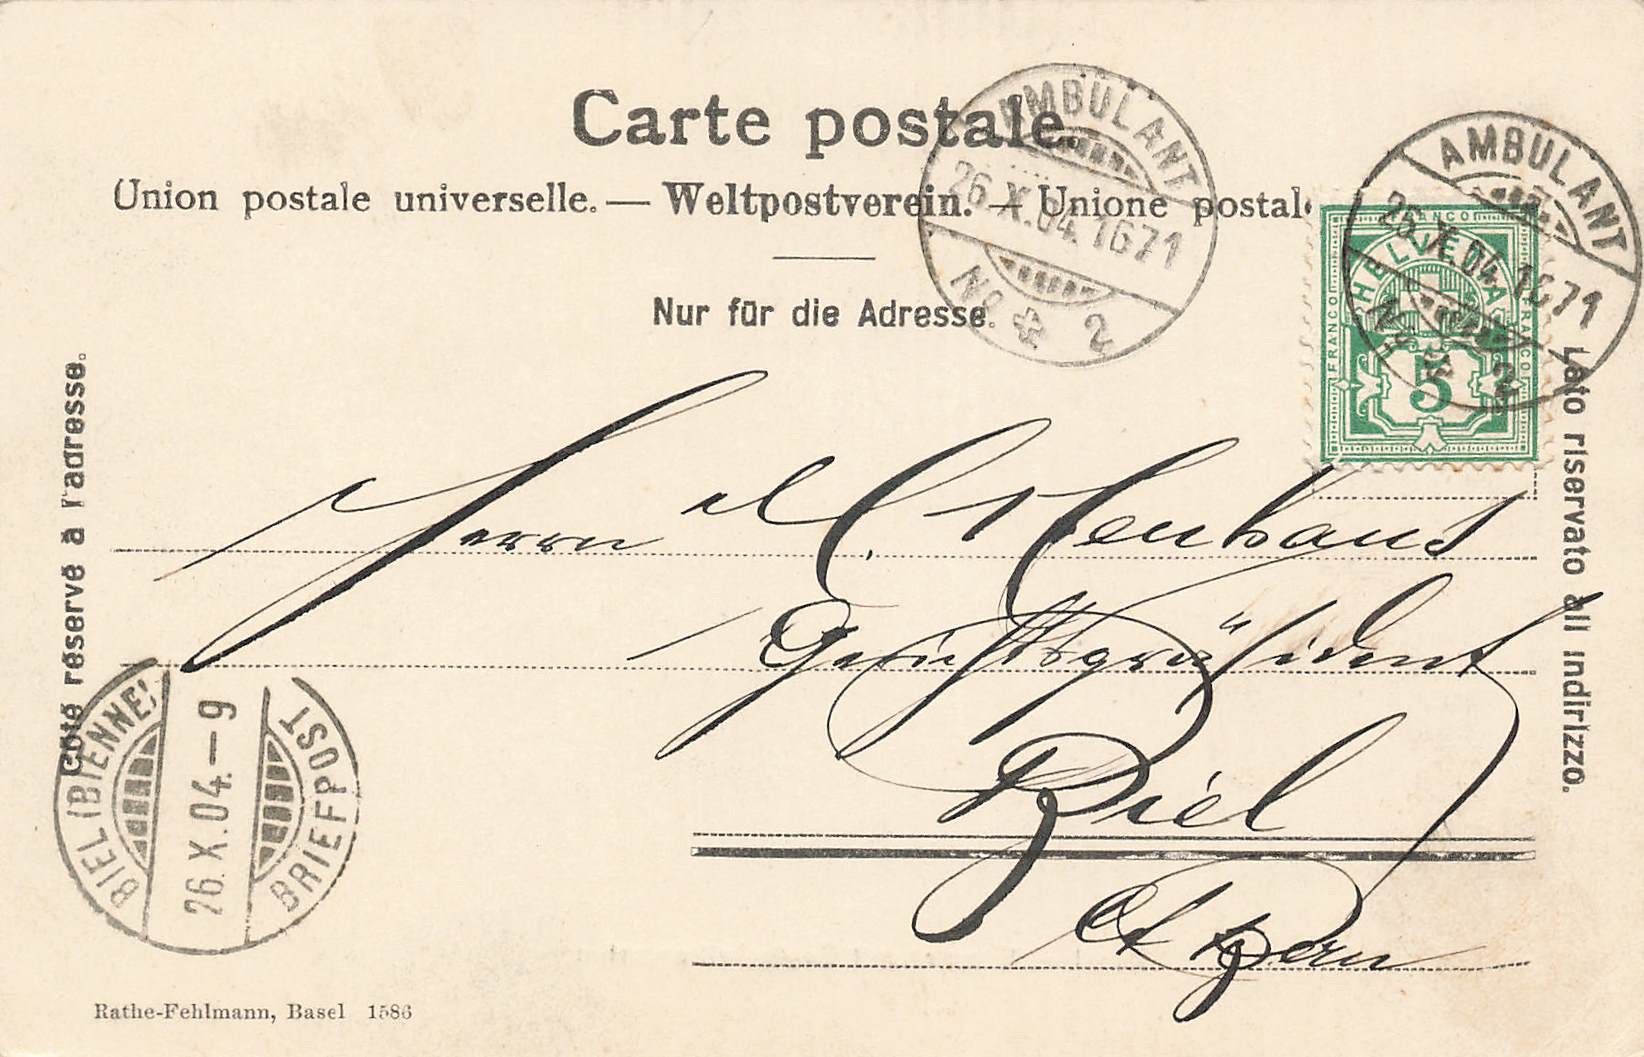 Carte postale.
Union postale universelle. — Weltpostverein. — Unione postal
Nur für die Adresse.
AMBULANT
26.X.04.1671
No 2
AMBULANT
26.X.04.1671
No 2
FRANCO
HELVETIA
FRANCO
FRANCO
5
Côté réservé à l'adresse.
Lato riservato all indirizzo.
Herrn A. Neuhaus
Gerichtspräsident
Biel
Ct Bern
BIEL (BIENNE)
26.X.04.–9
BRIEFPOST
Rathe-Fehlmann, Basel 1586